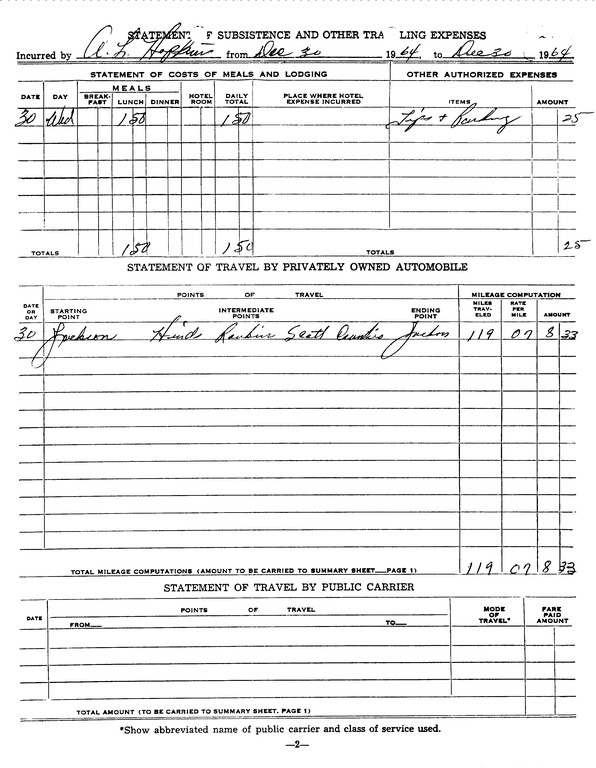 STATEMENT F SUBSISTENCE AND OTHER TRA LING EXPENSES
Incurred by A. L. Hopkins from Dec 30 1964, to Dec 30, 1964
STATEMENT OF COSTS OF MEALS AND LODGING OTHER AUTHORIZED EXPENSES
DATE DAY MEALS BREAK-FAST LUNCH DINNER HOTEL ROOM DAILY TOTAL PLACE WHERE HOTEL EXPENSE INCURRED ITEMS AMOUNT
30 Wed 1 50 1 50 Tips + Parking 25
TOTALS 1 50 1 50 TOTALS 25
STATEMENT OF TRAVEL BY PRIVATELY OWNED AUTOMOBILE
POINTS OF TRAVEL MILEAGE COMPUTATION
DATE OR DAY STARTING POINT INTERMEDIATE POINTS ENDING POINT MILES TRAV-ELED RATE PER MILE AMOUNT
30 Jackson Hinds Rankin Scott Counties Jackson 119 07 8 33
TOTAL MILEAGE COMPUTATIONS (AMOUNT TO BE CARRIED TO SUMMARY SHEET—PAGE 1) 119 07 8 33
STATEMENT OF TRAVEL BY PUBLIC CARRIER
DATE POINTS OF TRAVEL MODE OF TRAVEL* FARE PAID AMOUNT
FROM— TO—
TOTAL AMOUNT (TO BE CARRIED TO SUMMARY SHEET, PAGE 1)
*Show abbreviated name of public carrier and class of service used.
—2—